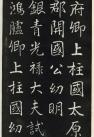 府卿上柱國太原
郡開國公幼明
銀青光祿大夫試
鴻臚卿上柱國幼